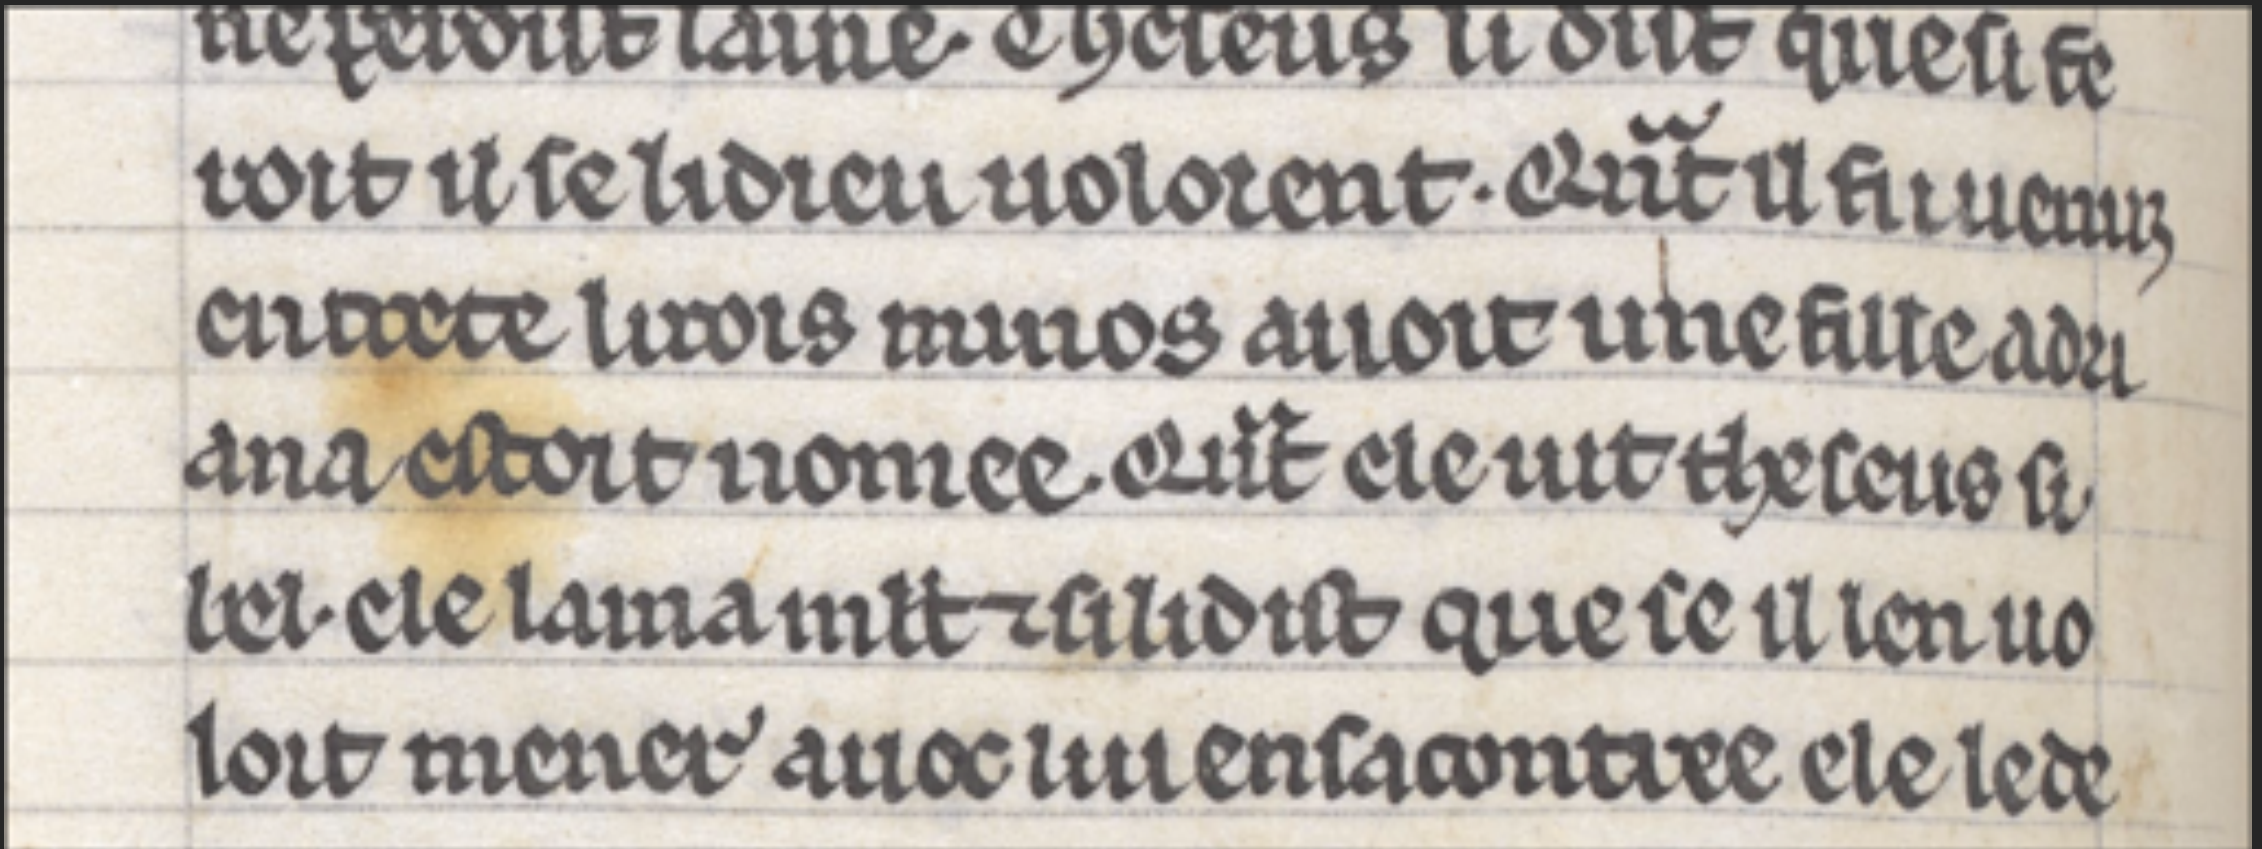 ne perdist lame. Theseus li dist que si fe
roit il se li dieu uoloient. Qñt il fu uenuz
en crete li rois minos auoit une fille adri
ana estoit nomee. Qñt ele uit theseus si
bel. ele lama mlt ⁊ si li dist que se il len uo
loit mener auoc lui en sa contree ele le de